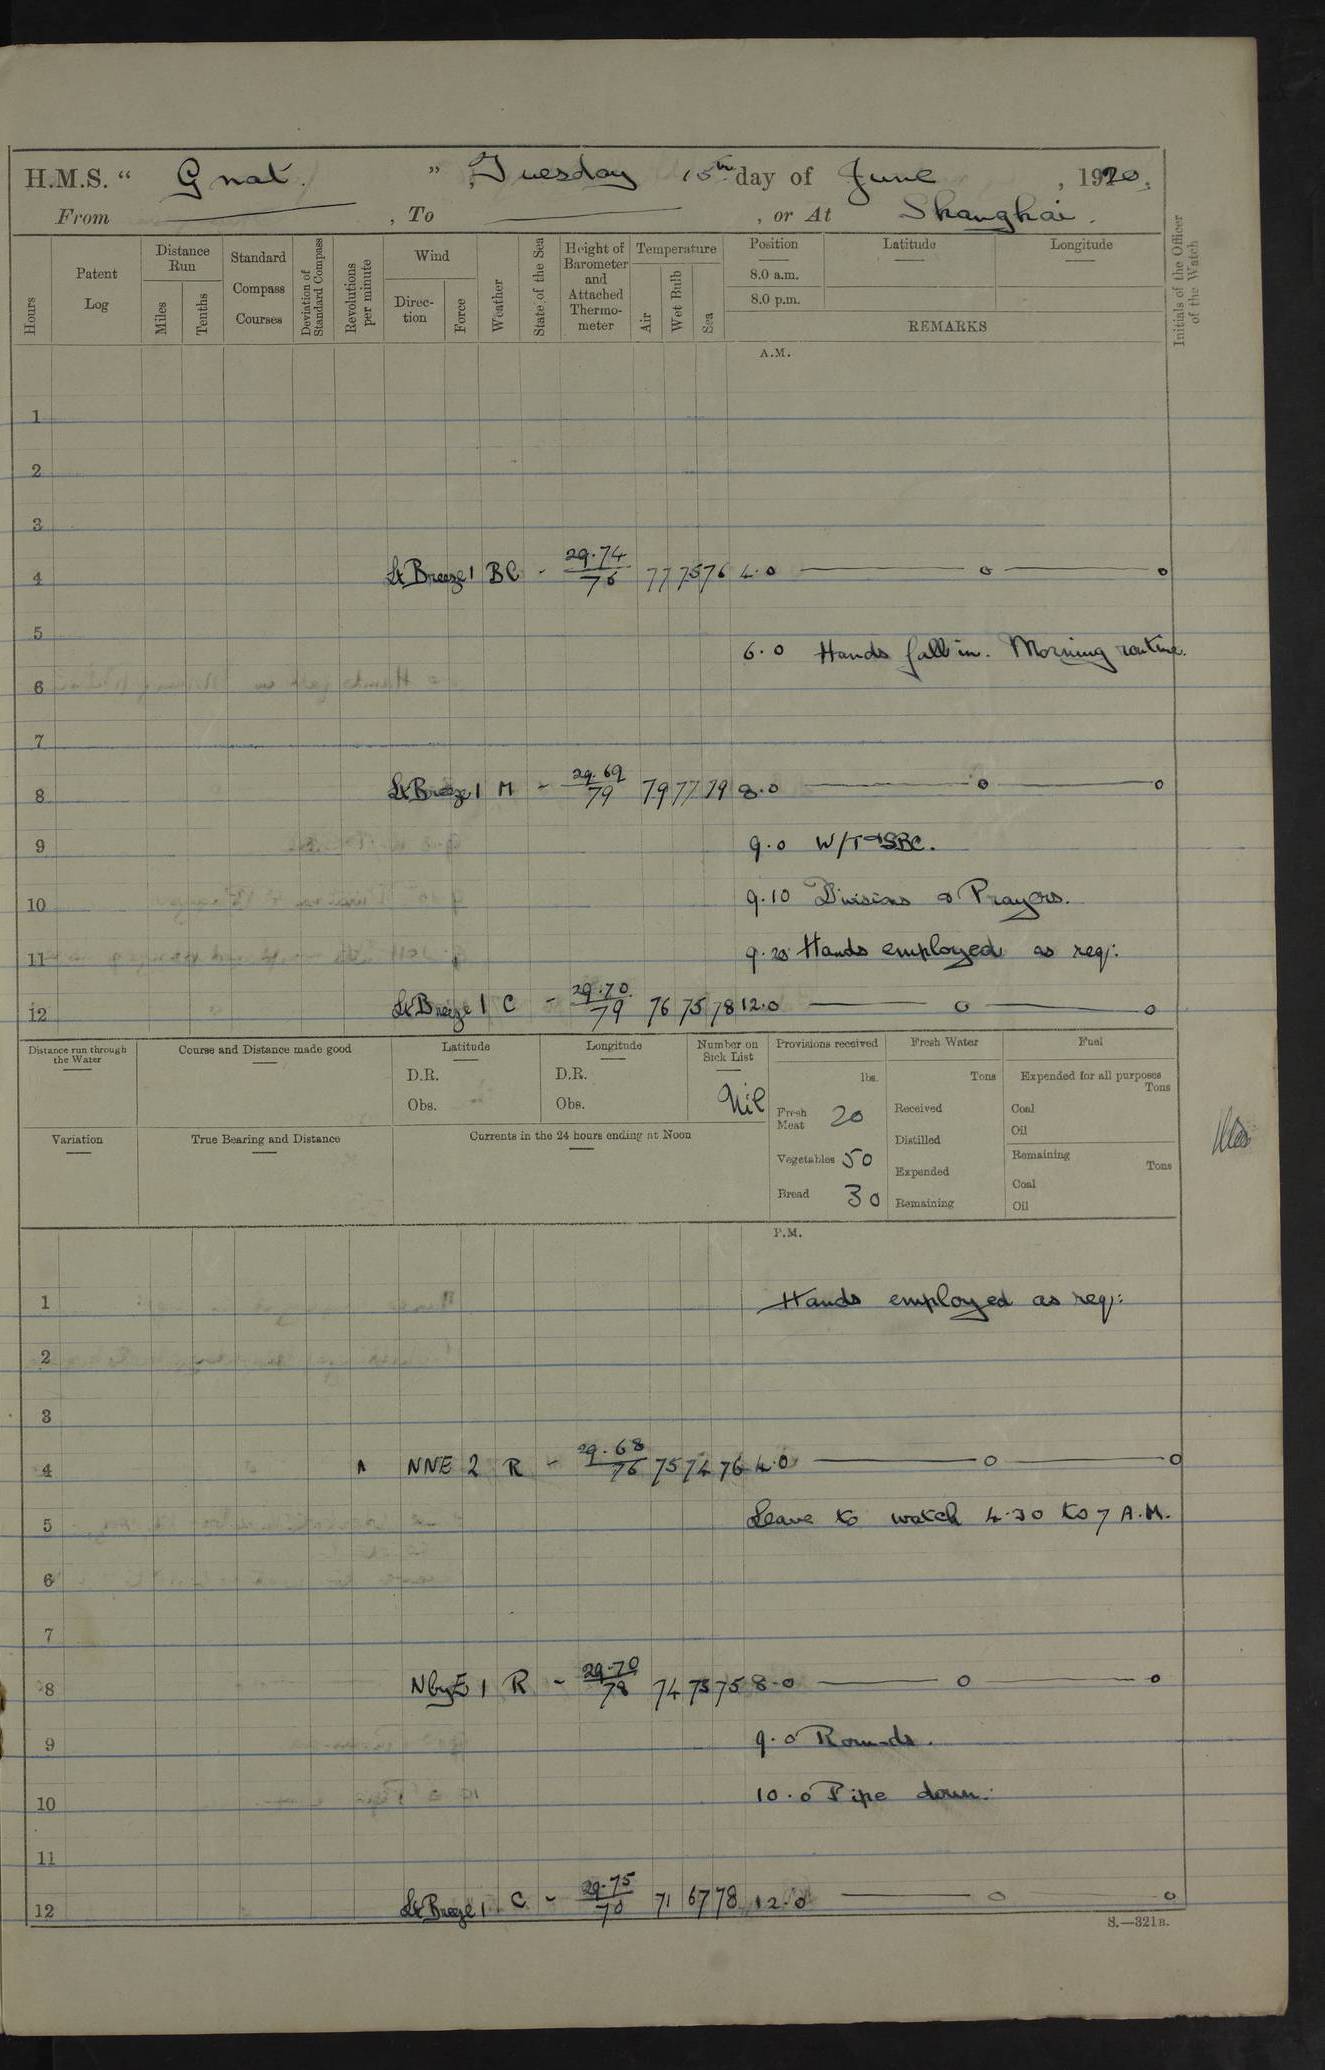 H.M.S. “ Gnat. ” Tuesday 15th day of June , 1920.
From , To , or At Shanghai.
Hours
Patent Log
Distance Run
Miles
Tenths
Standard Compass Courses
Deviation of Standard Compass
Revolutions per minute
Wind
Direction
Force
Weather
State of the Sea
Height of Barometer and Attached Thermometer
Temperature
Air
Wet Bulb
Sea
Position
8.0 a.m.
8.0 p.m.
Latitude
Longitude
REMARKS
Initials of the Officer of the Watch
A.M.
1
2
3
4 Lt Breeze 1 BC - 29.74 / 76 77 75 76 4.0 — o — o
5
6.0 Hands fall in. Morning routine.
6
7
8 Lt Breeze 1 M - 29.69 / 79 79 77 79 8.0 — o — o
9 9.0 W/T & SBC.
10 9.10 Divisions & Prayers.
11 9.20 Hands employed as req:
12 Lt Breeze 1 C - 29.70 / 79 76 75 78 12.0 — o — o
Distance run through the Water
Course and Distance made good
Latitude
D.R.
Obs.
Longitude
D.R.
Obs.
Number on Sick List
Nil
Provisions received
lbs.
Fresh Meat 20
Vegetables 50
Bread 30
Fresh Water
Tons
Received
Distilled
Expended
Remaining
Fuel
Expended for all purposes
Tons
Coal
Oil
Remaining
Tons
Coal
Oil
Variation
True Bearing and Distance
Currents in the 24 hours ending at Noon
P.M.
1 Hands employed as req:
2
3
4 NNE 2 R - 29.68 / 76 75 74 76 4.0 — o — o
5 Leave to watch 4.30 to 7 A.M.
6
7
8 NbyE 1 R - 29.70 / 78 74 73 75 8.0 — o — o
9 9.0 Rounds.
10 10.0 Pipe down.
11
12 Lt Breeze 1 C - 29.75 / 70 71 67 78 12.0 — o — o
S.—321B.